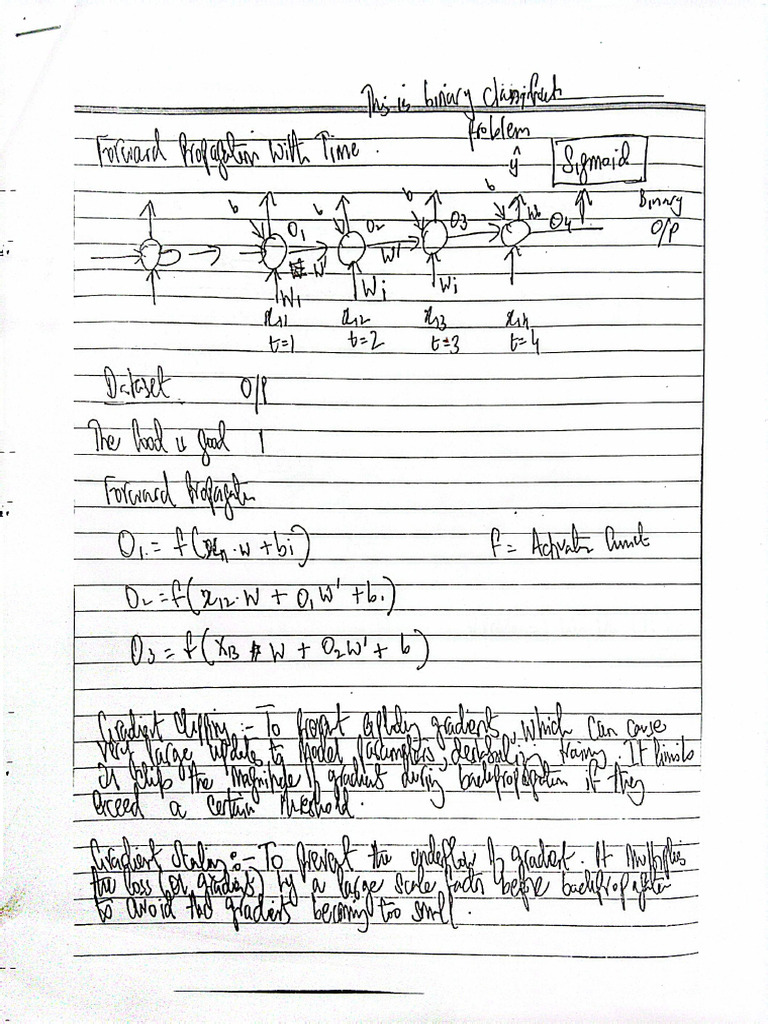 This is binary classificat
Problem
Forward Propagation With Time.
ŷ
Sigmoid
b b b b
O1 O2 O3 W6 O4
Binary
O/P
W' W'
W1 Wi Wi
x11 x12 x13 x14
t=1 t=2 t=3 t=4
Dataset O/P
The food is good 1
Forward Propagatn
O1 = f(x11.w + bi) f = Activatn funct
O2 = f(x12.W + O1W' + bi)
O3 = f(X13 * W + O2W' + b)
Gradient Clipping :- To prevent exploding gradients, which can cause
very large updates to model parameters, destabilizing training. It limits
or clips the magnitude of gradient during backpropagation if they
exceed a certain threshold.
Gradient Scaling :- To prevent the underflow of gradient. It multiplies
the loss (or gradients) by a large scale factor before backpropagation
to avoid the gradients becoming too small.